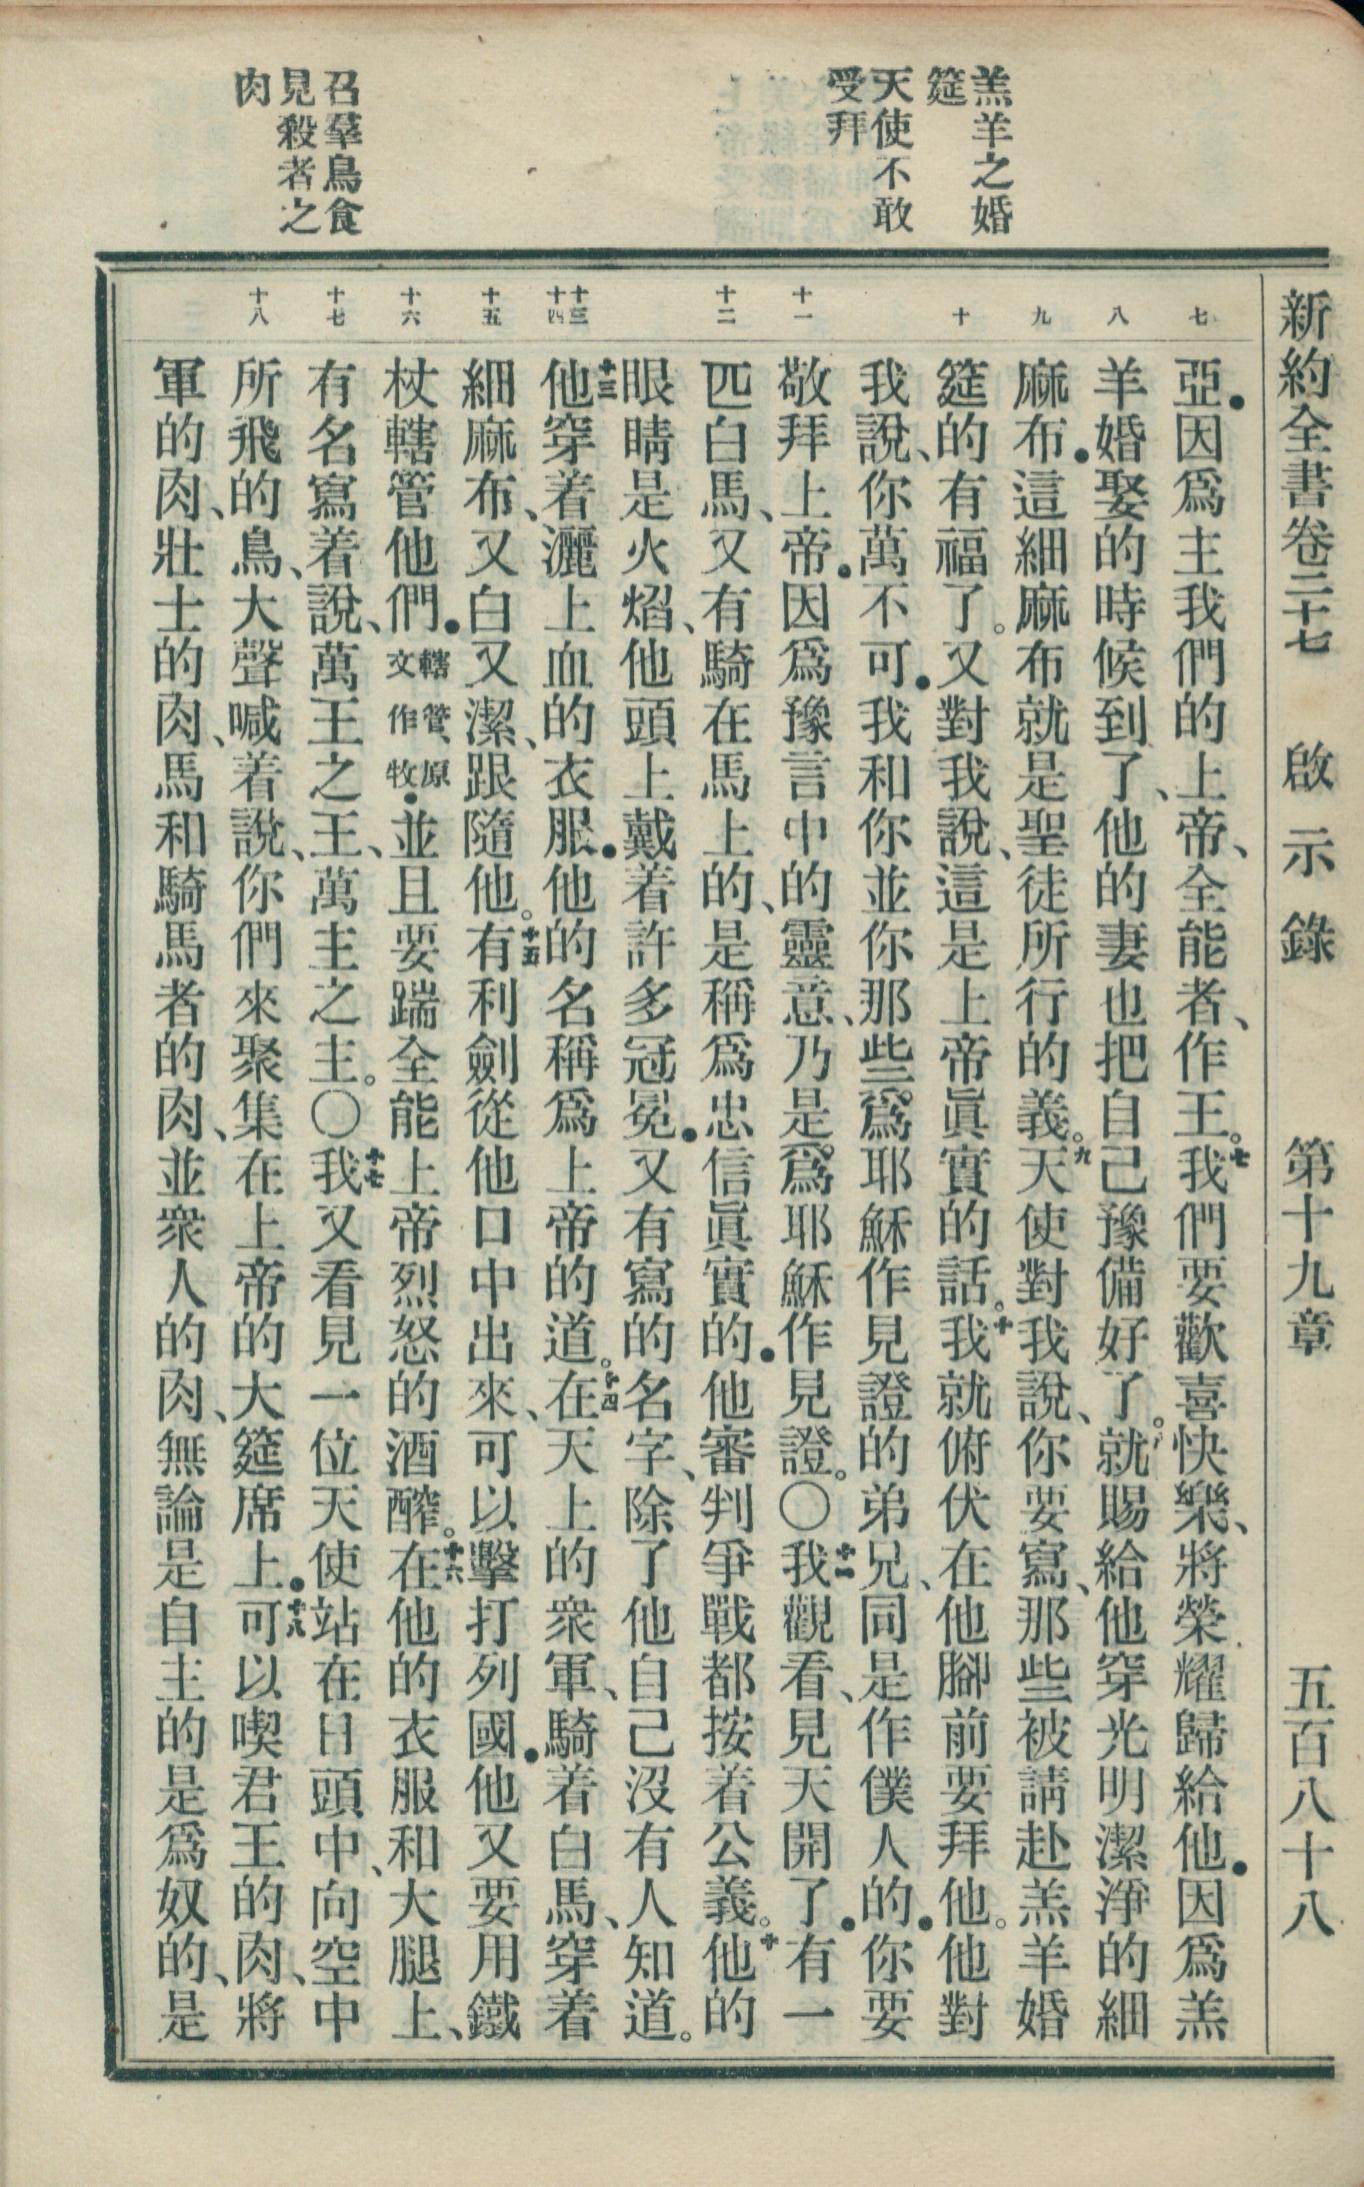 新約全書卷二十七　啟示錄　第十九章　五百八十八
羔羊之婚
筵
天使不敢
受拜
召羣鳥食
見殺者之
肉
七
八
九
十
十一
十二
十三
十四
十五
十六
十七
十八
亞●因爲主我們的上帝、全能者、作王。七我們要歡喜快樂、將榮耀歸給他●因爲羔
羊婚娶的時候到了、他的妻也把自己豫備好了。八就賜給他穿光明潔淨的細
麻布●這細麻布就是聖徒所行的義。九天使對我說、你要寫、那些被請赴羔羊婚
筵的有福了。又對我說、這是上帝眞實的話。十我就俯伏在他腳前要拜他。他對
我說、你萬不可●我和你並你那些爲耶穌作見證的弟兄、同是作僕人的●你要
敬拜上帝●因爲豫言中的靈意、乃是爲耶穌作見證。〇十一我觀看、見天開了●有一
匹白馬、又有騎在馬上的、是稱爲忠信眞實的●他審判爭戰都按着公義。十二他的
眼睛是火焰、他頭上戴着許多冠冕●又有寫的名字、除了他自己沒有人知道。
十三他穿着灑上血的衣服●他的名稱爲上帝的道。十四在天上的衆軍、騎着白馬、穿着
細麻布、又白又潔、跟隨他。十五有利劍從他口中出來、可以擊打列國●他又要用鐵
杖轄管他們●轄管、原文作牧●並且要踹全能上帝烈怒的酒醡。十六在他的衣服和大腿上、
有名寫着說、萬王之王、萬主之主。〇十七我又看見一位天使站在日頭中、向空中
所飛的鳥、大聲喊着說、你們來聚集在上帝的大筵席上●十八可以喫君王的肉、將
軍的肉、壯士的肉、馬和騎馬者的肉、並衆人的肉、無論是自主的是爲奴的、是